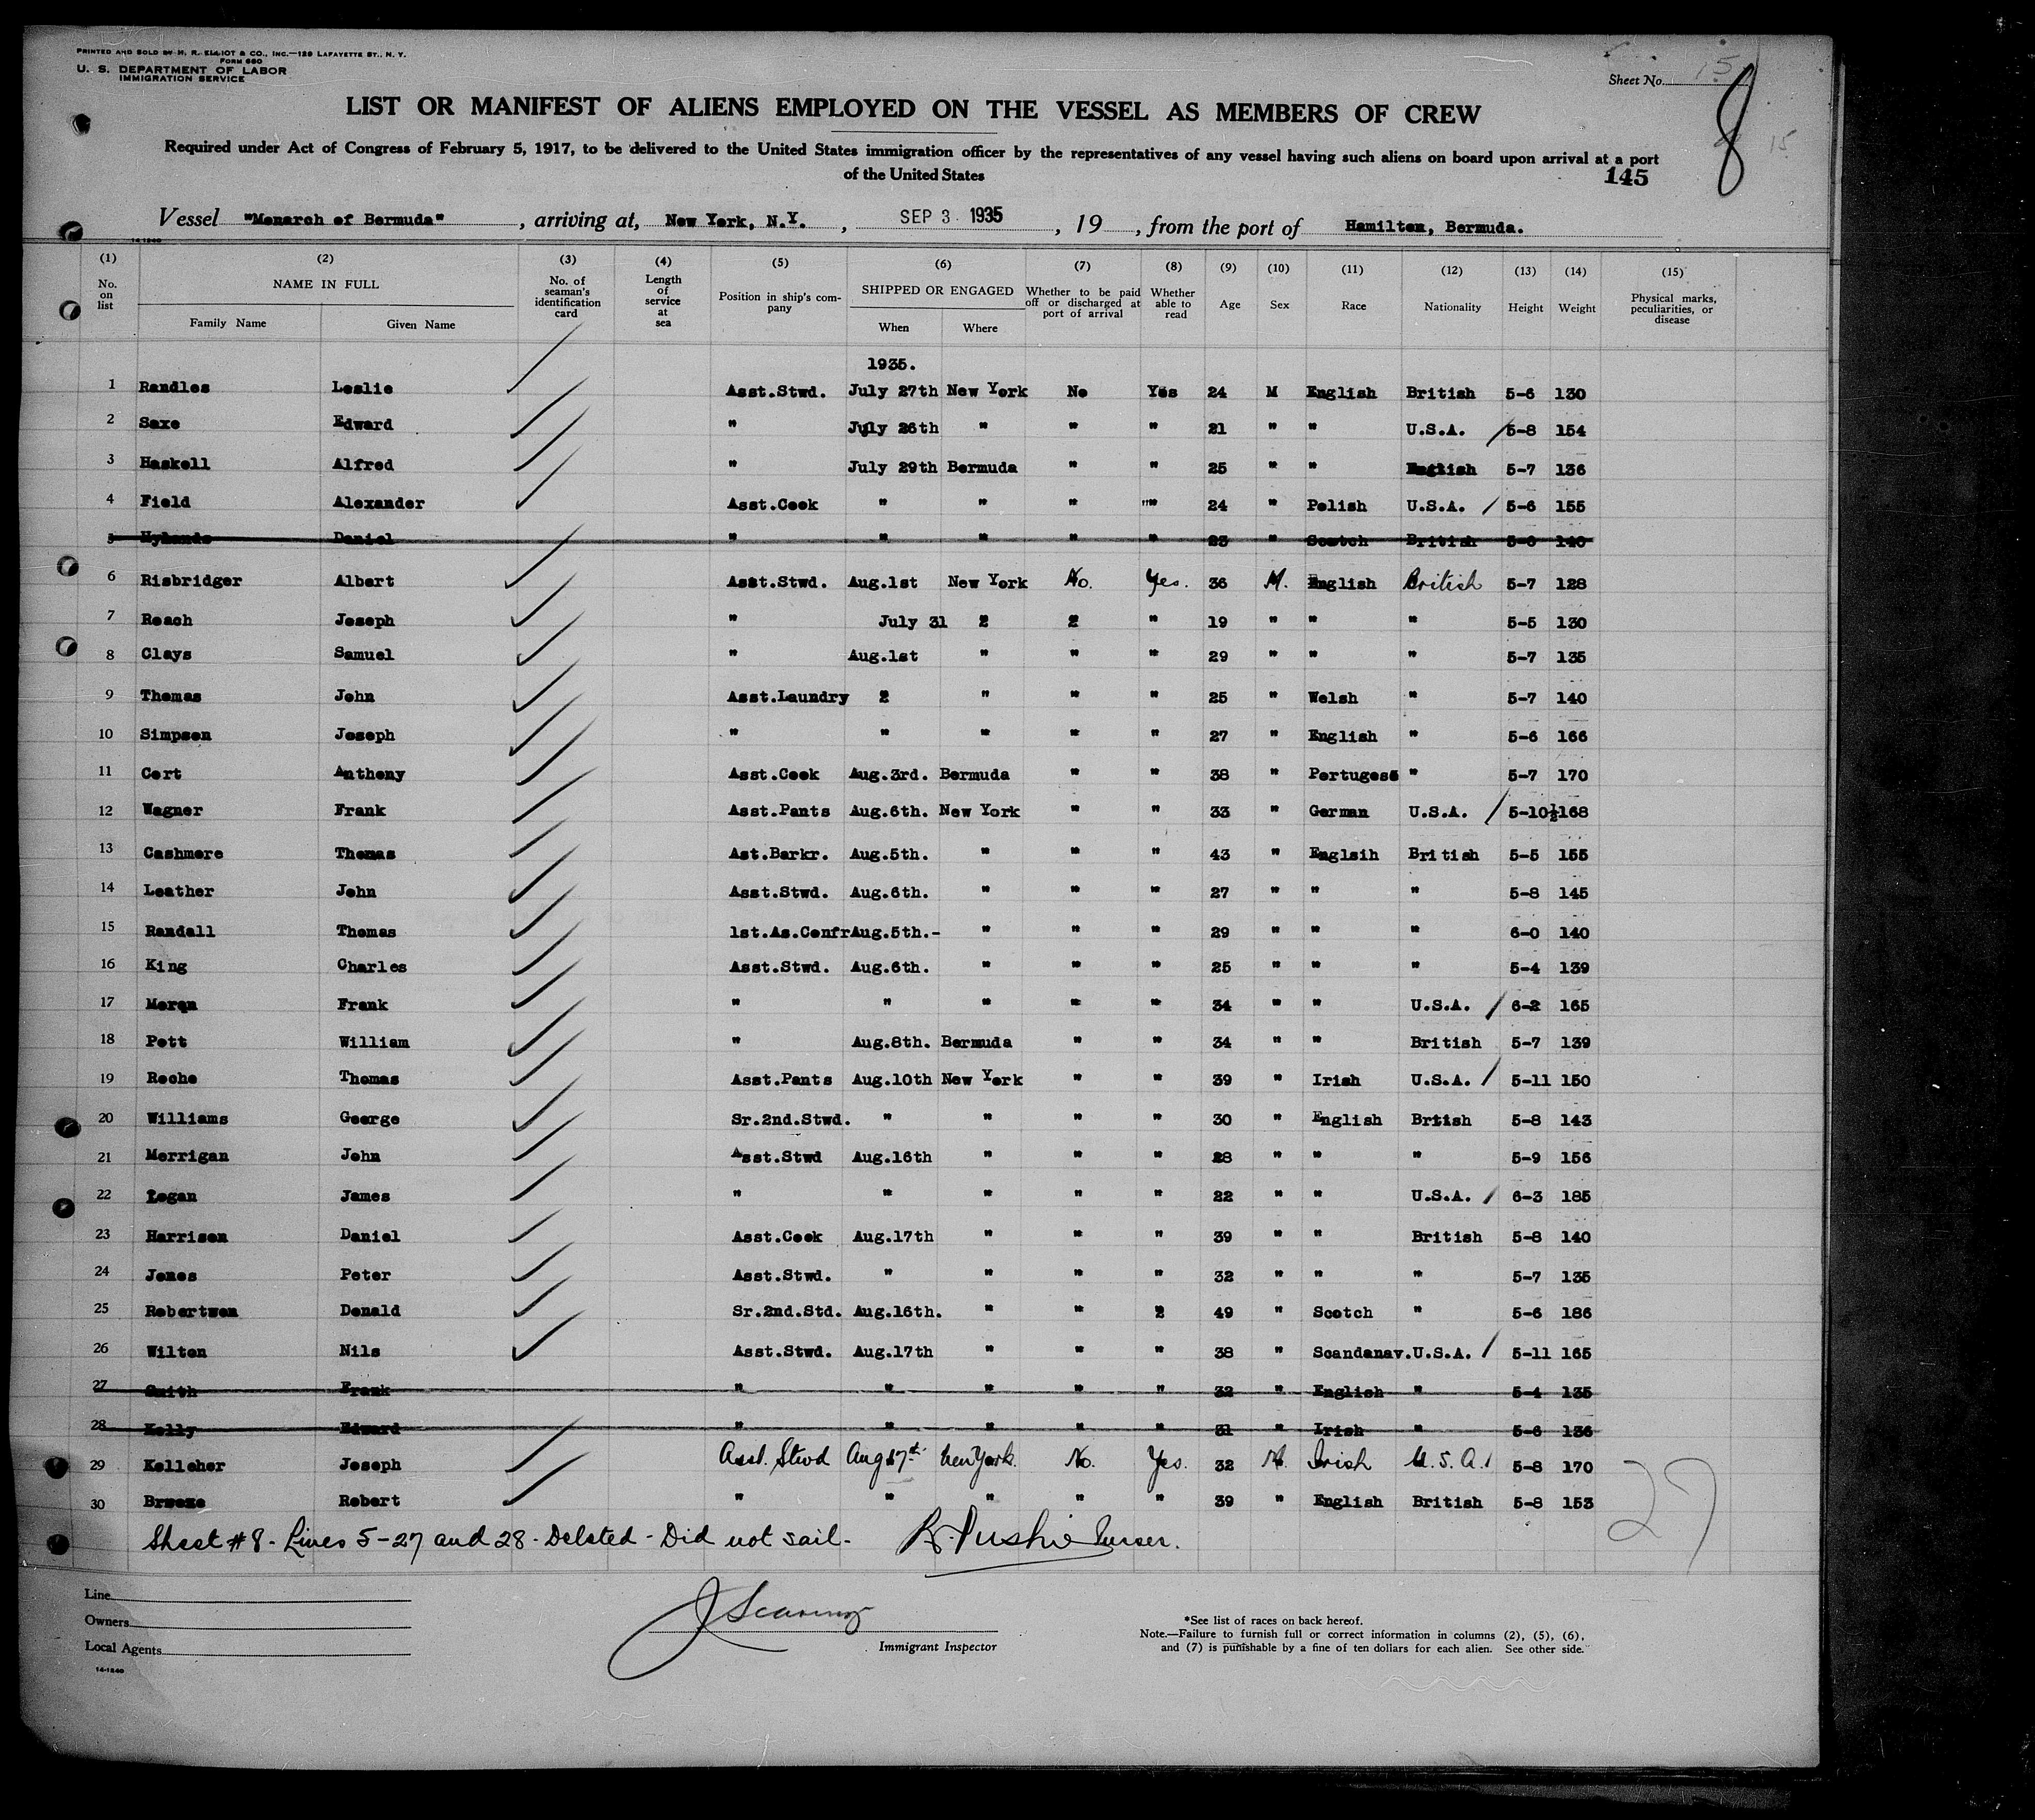 PRINTED AND SOLD BY H. R. ELLIOT & CO., INC.—129 LAFAYETTE ST., N. Y.
FORM 680
U. S. DEPARTMENT OF LABOR
IMMIGRATION SERVICE
Sheet No. 15
8
15
LIST OR MANIFEST OF ALIENS EMPLOYED ON THE VESSEL AS MEMBERS OF CREW
Required under Act of Congress of February 5, 1917, to be delivered to the United States immigration officer by the representatives of any vessel having such aliens on board upon arrival at a port
of the United States
145
Vessel "Monarch of Bermuda", arriving at, New York, N.Y., SEP 3 1935, 19, from the port of Hamilton, Bermuda.
14-1240
(1) (2) (3) (4) (5) (6) (7) (8) (9) (10) (11) (12) (13) (14) (15)
No. on list NAME IN FULL Family Name Given Name No. of seaman's identification card Length of service at sea Position in ship's company SHIPPED OR ENGAGED When Where Whether to be paid off or discharged at port of arrival Whether able to read Age Sex Race Nationality Height Weight Physical marks, peculiarities, or disease
1935.
1 Randles Leslie Asst.Stwd. July 27th New York No Yes 24 M English British 5-6 130
2 Saxe Edward " July 26th " " " 21 " " U.S.A. / 5-8 154
3 Haskell Alfred " July 29th Bermuda " " 25 " " English 5-7 136
4 Field Alexander Asst.Cook " " " "" 24 " Polish U.S.A. / 5-6 155
5 Hylands Daniel " " " " " 23 " Scotch British 5-6 140
6 Risbridger Albert Asst.Stwd. Aug.1st New York No. Yes. 36 M. English British 5-7 128
7 Roach Joseph " July 31 2 2 " 19 " " " 5-5 130
8 Clays Samuel " Aug.1st " " " 29 " " " 5-7 135
9 Thomas John Asst.Laundry 2 " " " 25 " Welsh " 5-7 140
10 Simpson Joseph " " " " " 27 " English " 5-6 166
11 Cort Anthony Asst.Cook Aug.3rd. Bermuda " " 38 " Portugese " 5-7 170
12 Wagner Frank Asst.Pants Aug.6th. New York " " 33 " German U.S.A. / 5-10½ 168
13 Cashmere Thomas Ast.Barkr. Aug.5th. " " " 43 " Englsih British 5-5 155
14 Leather John Asst.Stwd. Aug.6th. " " " 27 " " " 5-8 145
15 Randall Thomas 1st.As.Confr Aug.5th.- " " " 29 " " " 6-0 140
16 King Charles Asst.Stwd. Aug.6th. " " " 25 " " " 5-4 139
17 Moran Frank " " " " " 34 " " U.S.A. / 6-2 165
18 Pott William " Aug.8th. Bermuda " " 34 " " British 5-7 139
19 Roche Thomas Asst.Pants Aug.10th New York " " 39 " Irish U.S.A. / 5-11 150
20 Williams George Sr.2nd.Stwd. " " " " 30 " English Brtish 5-8 143
21 Merrigan John Asst.Stwd Aug.16th " " " 28 " " " 5-9 156
22 Logan James " " " " " 22 " " U.S.A. / 6-3 185
23 Harrison Daniel Asst.Cook Aug.17th " " " 39 " " British 5-8 140
24 Jones Peter Asst.Stwd. " " " " 32 " " " 5-7 135
25 Robertson Donald Sr.2nd.Std. Aug.16th. " " 2 49 " Scotch " 5-6 186
26 Wilton Nils Asst.Stwd. Aug.17th " " " 38 " Scandanav. U.S.A. / 5-11 165
27 Smith Frank " " " " " 32 " English " 5-4 135
28 Kelly Edward " " " " " 31 " Irish " 5-6 136
29 Kelleher Joseph Asst. Stwd Aug 17th New York. No. Yes. 32 M. Irish U.S.A. / 5-8 170
30 Breeze Robert " " " " " 39 " English British 5-8 153
27
Sheet #8 - Lines 5-27 and 28 - Deleted - Did not sail. Purser.
Line
Owners
Local Agents
14-1240
Immigrant Inspector
*See list of races on back hereof.
Note.—Failure to furnish full or correct information in columns (2), (5), (6),
and (7) is punishable by a fine of ten dollars for each alien. See other side.